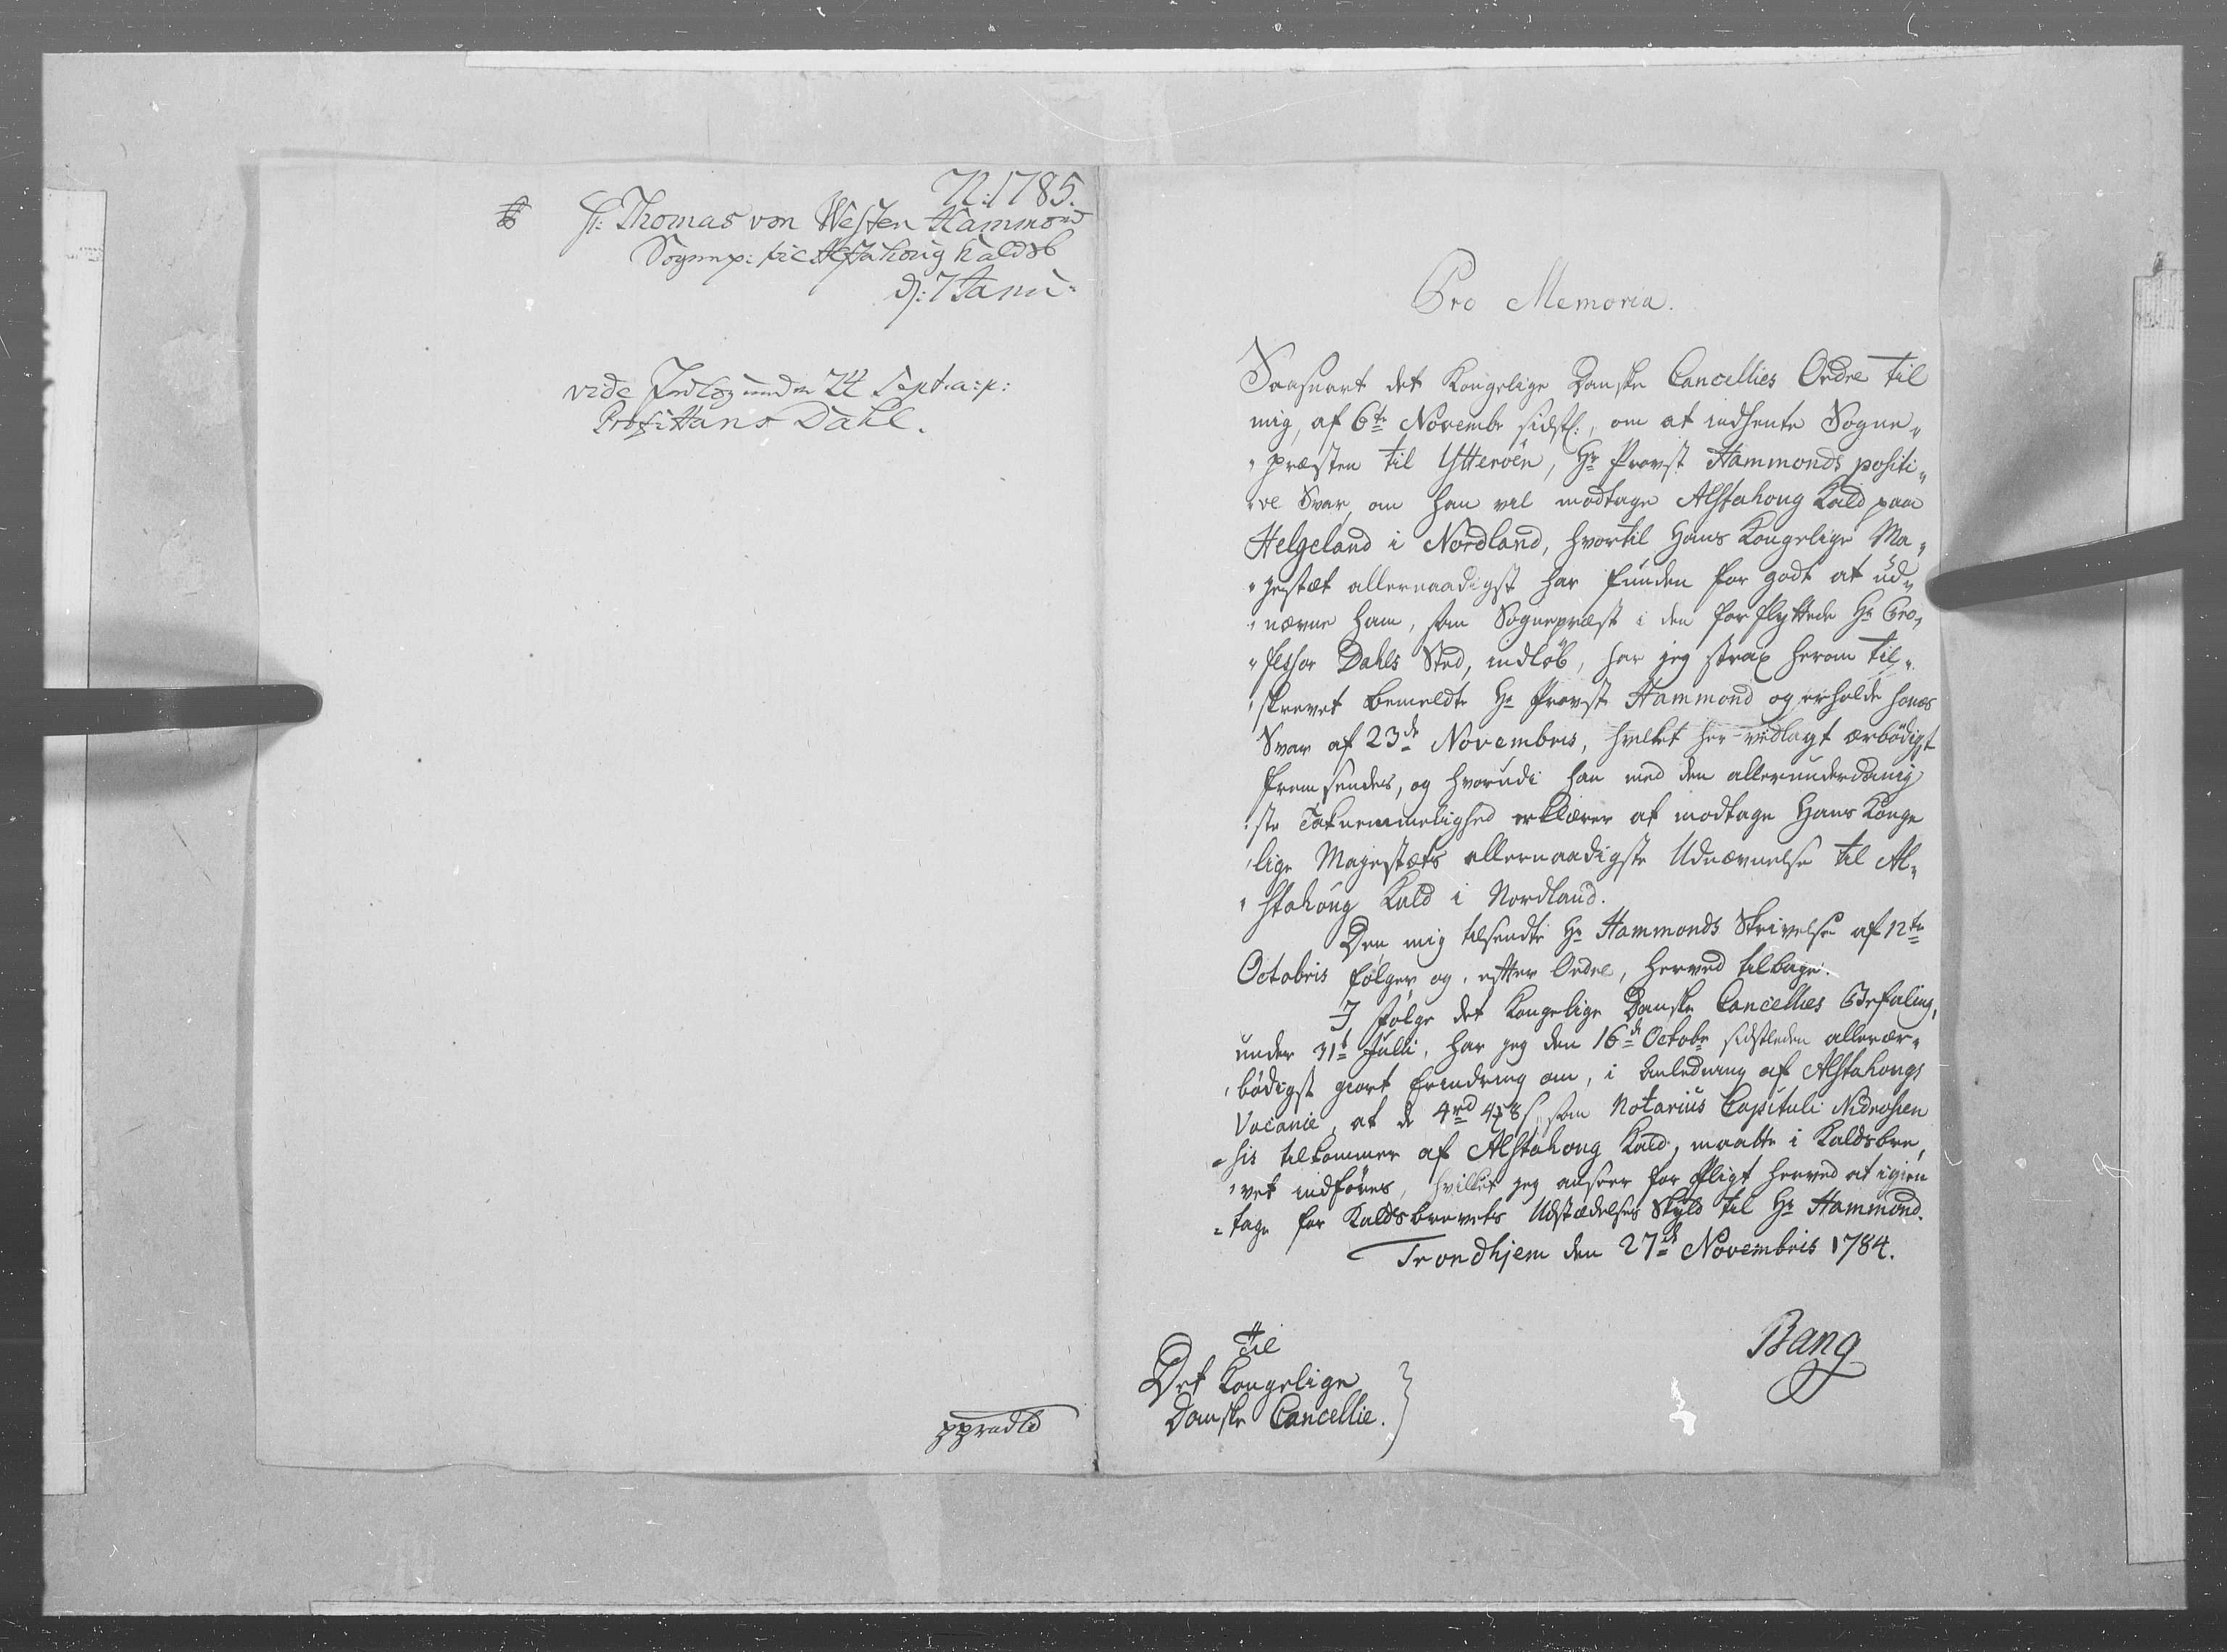 N: 1785.
Hr: Thomas von Westen Hammond
Sognep: til Alstahoug Kaldsb
d: 7 Janu:
vide Indlæg under 24 Sept: a: p:
Prof: Hans Dahl.
Pro Memoria.
Saasnart det Kongelige Danske Cancellies Ordre til
mig, af 6te Novembr sidstl:, om at indhente Sogne„
„præsten til Ytterøen, Hr Provst Hammonds positi„
„ve Svar, om han vil modtage Alstahoug Kald paa
Helgeland i Nordland, hvortil Hans Kongelige Ma„
„jestæt allernaadigst har funden for godt at ud„
„nævne ham, som Sognepræst i den forflyttede Hr Pro„
„fessor Dahls Sted, indløb, har jeg strax herom til„
„skrevet bemeldte Hr Provst Hammond og erholdt hans
Svar af 23de Novembris, hvilket her vedlagt ærbødigst
fremsendes, og hvorudi han med den allerunderdanig
„ste Taknemmelighed erklærer at modtage Hans Konge
„lige Majestæts allernaadigste Udnævnelse til Al„
„stahoug Kald i Nordland.
Den mig tilsendte Hr Hammonds Skrivelse af 12te
Octobris følger og, efter Ordre, herved tilbage.
I følge det Kongelige Danske Cancellies Befaling,
under 31te Julii, har jeg den 16de Octobr sidstleden allerær„
„bødigst giort Erindring om, i Anledning af Alstahougs
Vacance, at de 4rd 4 ₰ 8 s, som Notarius Capituli Nidrosien
„sis tilkommer af Alstahoug Kald, maatte i Kaldsbre„
„vet indføres, hvilket jeg anseer for Pligt herved at igien
„tage for Kaldsbrevets Udstædelses Skyld til Hr Hammond.
Trondhjem den 27de Novembris 1784.
Bang
Til
Det Kongelige
Danske Cancellie.